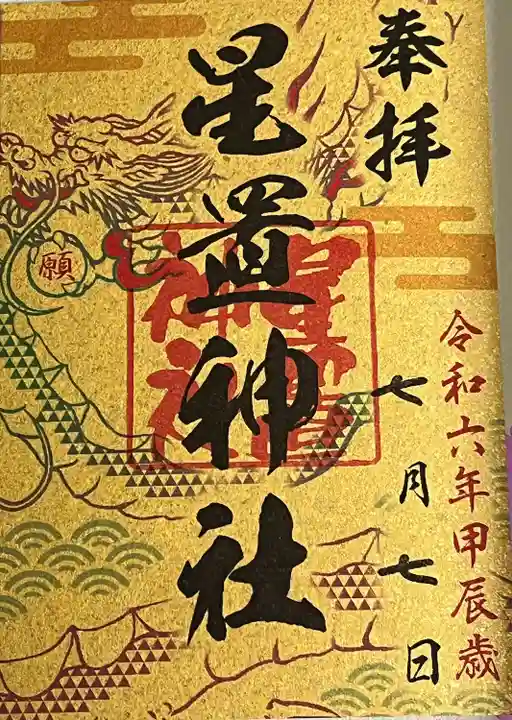 奉拝
令和六年甲辰歳
七月七日
星置神社
星置
神社
願